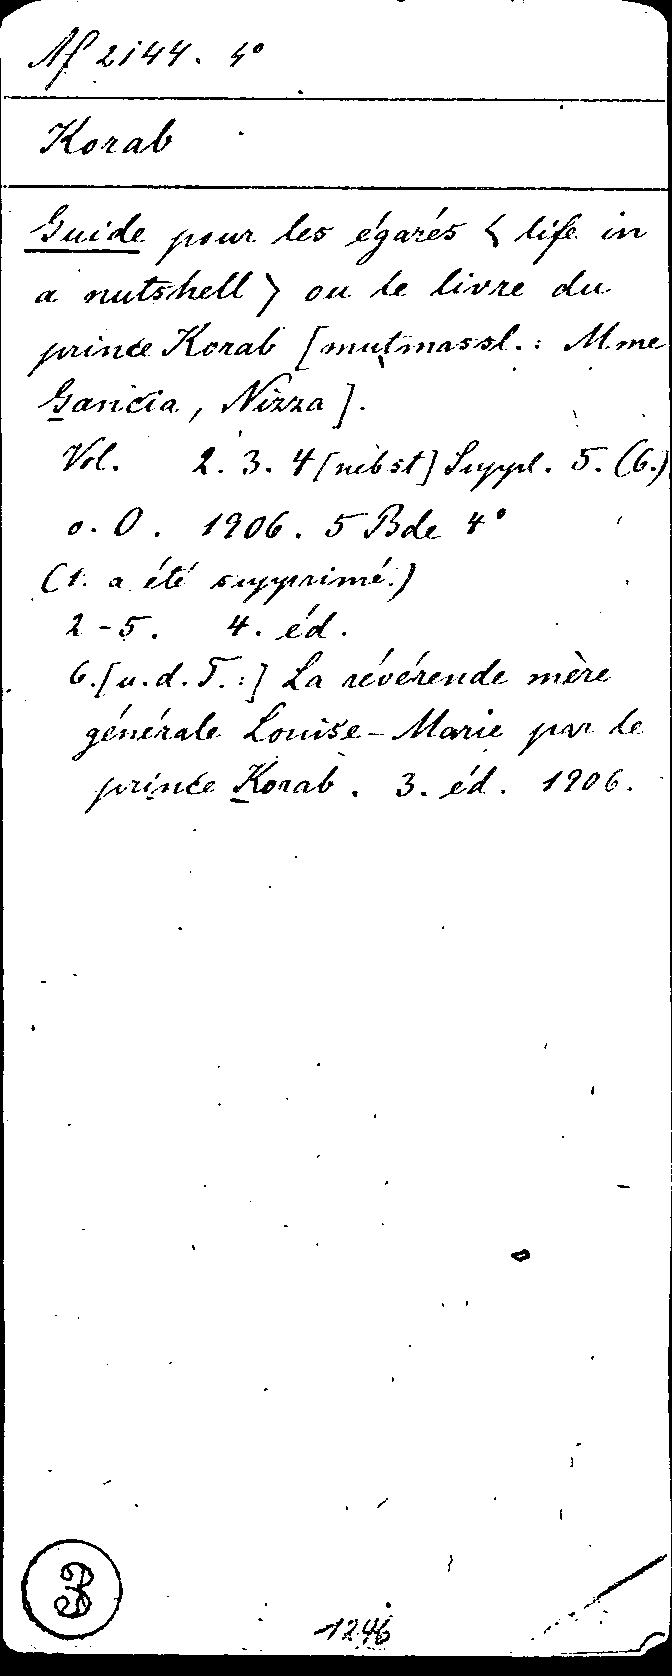 Af 2144. 4°
Korab
Guide pour les égarés < life in
a nutshell > ou le livre du
prince Korab [mutmassl.: Mme
Garicia, Nizza].
Vol. 2. 3. 4 [nebst] Suppl. 5. (6.)
o. O. 1906. 5 Bde 4°
(1. a été supprimé.)
2-5. 4. éd.
6. [u. d. T.:] La révérende mère
générale Louise-Marie par le
prince Korab. 3. éd. 1906.
3
1246